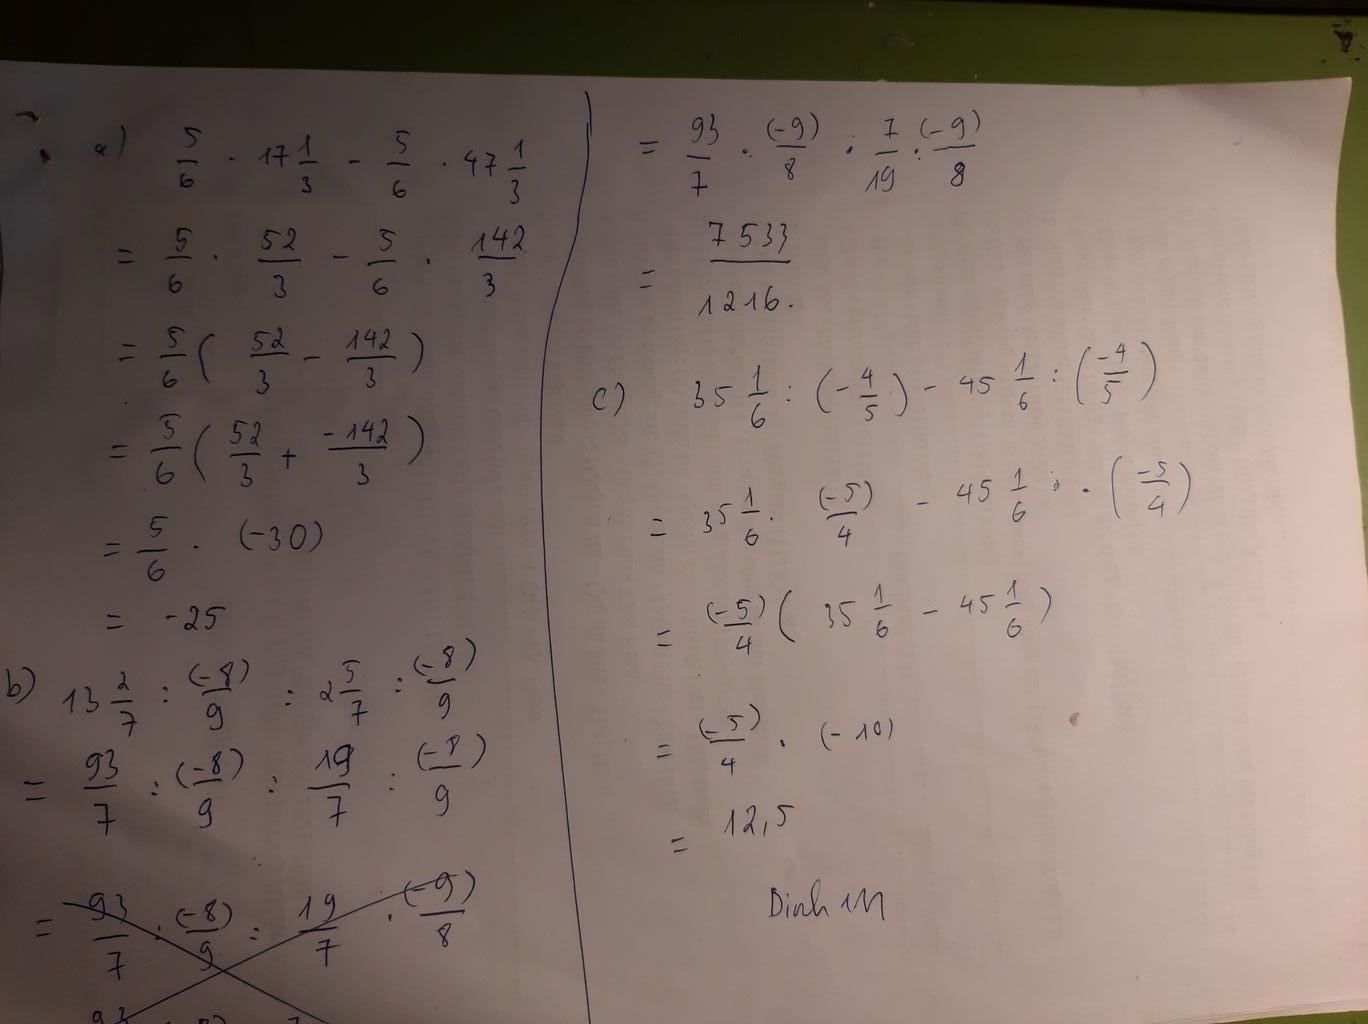 a) 5/6 · 17 1/3 - 5/6 · 47 1/3
= 5/6 · 52/3 - 5/6 · 142/3
= 5/6 ( 52/3 - 142/3 )
= 5/6 ( 52/3 + -142/3 )
= 5/6 · (-30)
= -25
b) 13 2/7 : (-8)/9 : 2 5/7 : (-8)/9
= 93/7 : (-8)/9 : 19/7 : (-8)/9
= 93/7 : (-8)/9 : 19/7 · (-9)/8
= 93/7 · (-9)/8 · 7/19 · (-9)/8
= 7533/1216.
c) 35 1/6 : (-4/5) - 45 1/6 : (-4/5)
= 35 1/6 · (-5)/4 - 45 1/6 · (-5/4)
= (-5)/4 ( 35 1/6 - 45 1/6 )
= (-5)/4 · (-10)
= 12,5